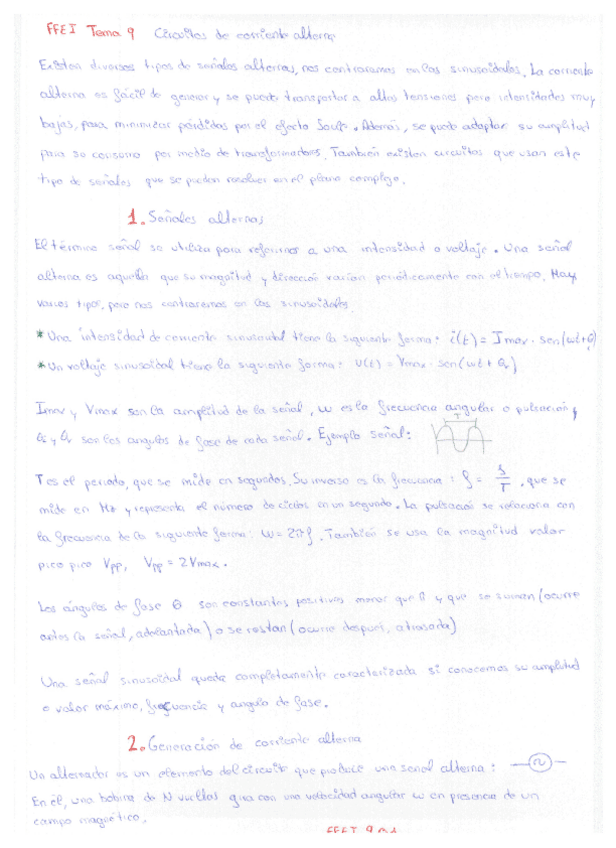 FFEI Tema 9 Circuitos de corriente alterna
Existen diversos tipos de señales alternas, nos centraremos en las sinusoidales. La corriente
alterna es fácil de generar y se puede transportar a altas tensiones pero intensidades muy
bajas, para minimizar pérdidas por el efecto Joule. Además, se puede adaptar su amplitud
para su consumo por medio de transformadores. También existen circuitos que usan este
tipo de señales que se pueden resolver en el plano complejo.
1. Señales alternas
El término señal se utiliza para referirnos a una intensidad o voltaje. Una señal
alterna es aquella que su magnitud y dirección varían periódicamente con el tiempo. Hay
varios tipos, pero nos centraremos en las sinusoidales.
* Una intensidad de corriente sinusoidal tiene la siguiente forma: i(t) = Imax · sen(wt + θi)
* Un voltaje sinusoidal tiene la siguiente forma: v(t) = Vmax · sen(wt + θv)
Imax y Vmax son la amplitud de la señal, w es la frecuencia angular o pulsación y
θi y θv son los angulos de fase de cada señal. Ejemplo señal: T
T es el periodo, que se mide en segundos. Su inverso es la frecuencia: f = 1/T, que se
mide en Hz y representa el número de ciclos en un segundo. La pulsación se relaciona con
la frecuencia de la siguiente forma: w = 2πf. También se usa la magnitud valor
pico pico Vpp, Vpp = 2Vmax.
Los ángulos de fase θ son constantes positivas menor que y que se suman (ocurre
antes la señal, adelantada) o se restan (ocurre después, atrasada)
Una señal sinusoidal queda completamente caracterizada si conocemos su amplitud
o valor máximo, frecuencia y angulo de fase.
2. Generación de corriente alterna
Un alternador es un elemento del circuito que produce una señal alterna:
En él, una bobina de N vueltas gira con una velocidad angular w en presencia de un
campo magnético.
FFEI 9